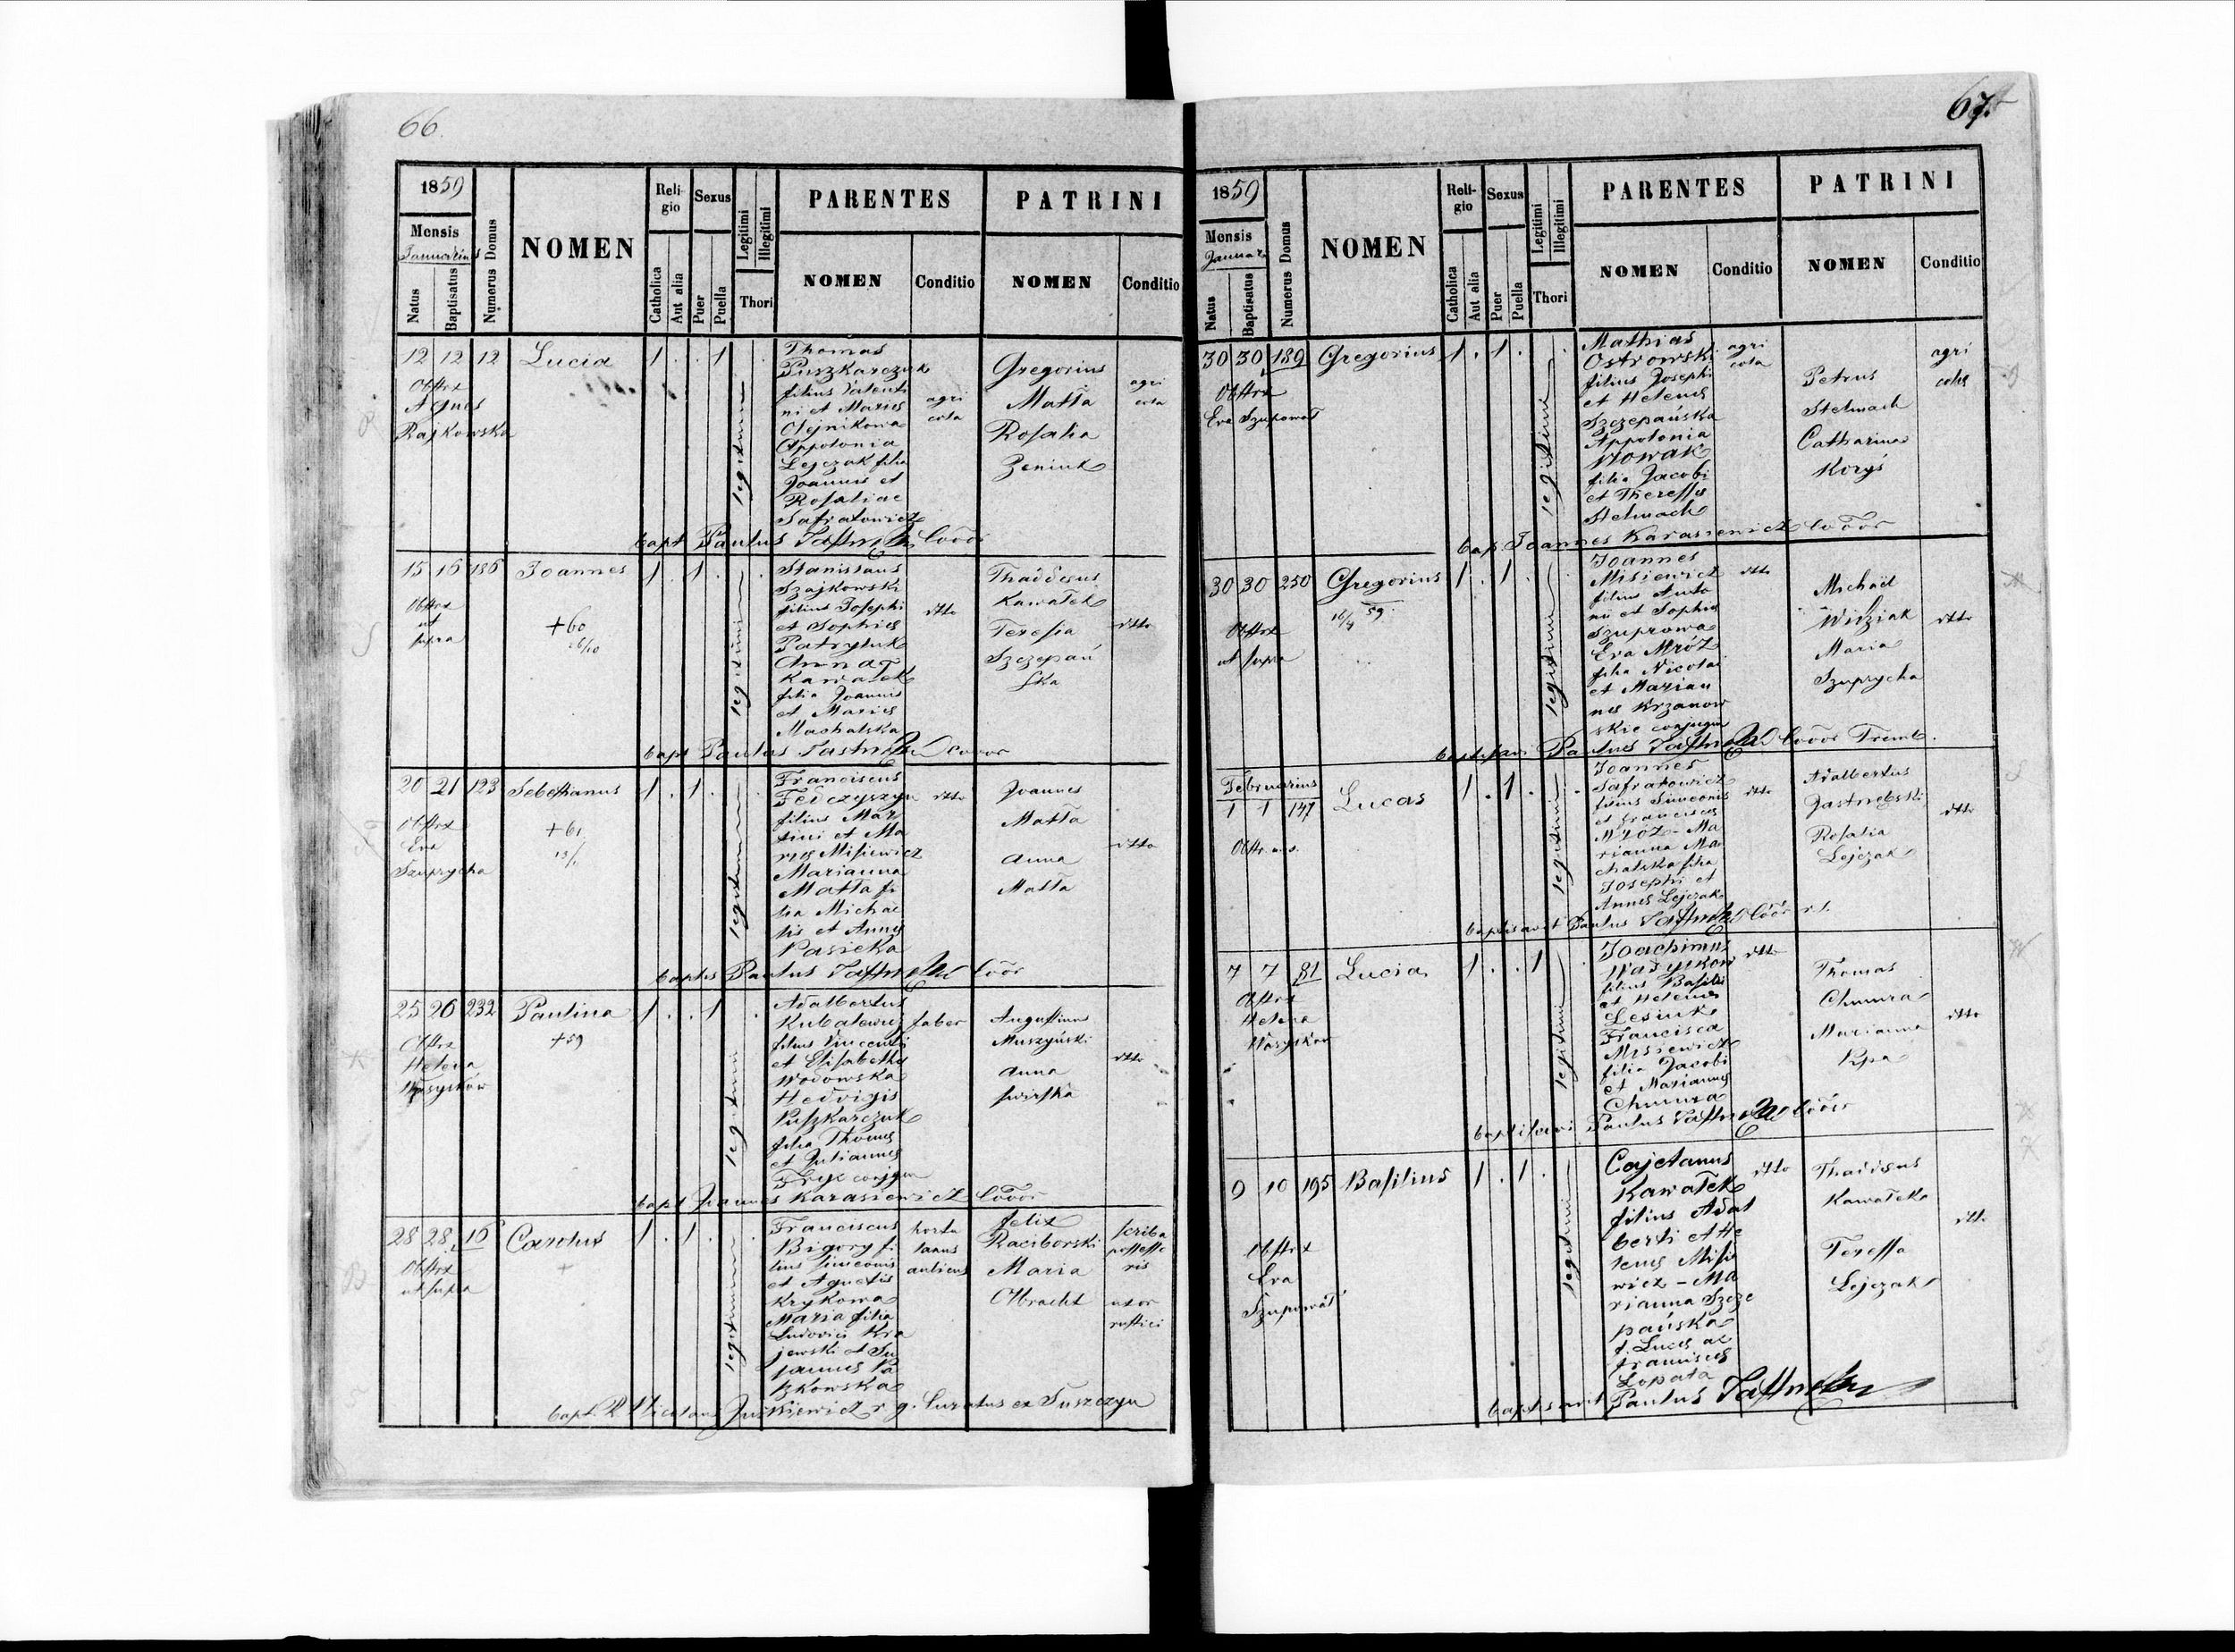 66.
1859
Mensis
Januarius
Natus
Baptisatus
Numerus Domus
NOMEN
Reli-
gio
Catholica
Aut alia
Sexus
Puer
Puella
Legitimi
Illegitimi
Thori
PARENTES
NOMEN
Conditio
PATRINI
NOMEN
Conditio
12 12 12 Lucia 1 . . 1
Obstrx
Agnes
Rajkowska
legitimi
Thomas
Puszkarczuk
filius Valenti
ni et Maries
Olejnikowa
Appolonia
Lejczak filia
Joannis et
Rosaliae
Safratowicz
agri
cola
Gregorius
Matła
Rosalia
Zeniuk
agri
cola
bapt Paulus Coöor
15 16 186 Joannes 1 . 1 .
Obstrx
ut
supra
+60
26/10
legitimi
Stanislaus
Szajkowski
filius Josephi
et Sophies
Patryluk
Anna
Kawałek
filia Joannis
et Maries
Machalska
ditto
Thaddeus
Kawałek
Teresia
Szczepań
ska
ditto
bapt Paulus Cooor
20 21 123 Sebestianus 1 . 1 .
Obstrx
Eva
Szuprycha
+61
13/1
legitimi
Franciscus
Fedczyszyn
filius Mar
tini et Ma
ries Misiewicz
Marianna
Matła fi
lia Michae
lis et Annes
Pasieka
ditto
Joannes
Matła
Anna
Matła
ditto
baptis Paulus Coör
25 26 232 Paulina 1 . . 1
Obstrx
Helena
Wasyłków
+59
legitimi
Adalbertus
Kubalewicz
filius Vincenti
et Elisabethes
Wodowska
Hedvigis
Puszkarczuk
filia Thomes
et Juliannes
Fryc conjgm
faber
Augustinus
Muszyński
Anna
Swirska
ditto
bapt Joannes Karasiewicz Coöor
28 28 16 Carolus 1 . 1 .
Obstrx
ut supra
+
legitimi
Franciscus
Bigory fi
lius Simeonis
et Agnetis
Krykowa
Maria filia
Ludovici Kra
jewski et Su
sannes Pa
szkowska
hortu
lanus
aulicus
Felix
Raciborski
Maria
Olbracht
scriba
possesso
ris
uxor
rustici
bapt. R. Nicolaus Juśkiewicz r. g. Curatus ex Suszczyn
67
1859
Mensis
Januar
Natus
Baptisatus
Numerus Domus
NOMEN
Reli-
gio
Catholica
Aut alia
Sexus
Puer
Puella
Legitimi
Illegitimi
Thori
PARENTES
NOMEN
Conditio
PATRINI
NOMEN
Conditio
30 30 189 Gregorius 1 . 1 .
Obstrx
Eva Szupowat
legitimi
Mathias
Ostrowski
filius Josephi
et Helenes
Szczepańska
Appolonia
Nowak
filia Jacobi
et Theresses
Stelmach
agri
cola
Petrus
Stelmach
Catharina
Koryś
agri
coles
bap Joannes Karasiewicz Coöor
30 30 250 Gregorius 1 . 1 .
16/4 59.
Obstrx
ut supra
legitimi
Joannes
Misiewicz
filius Anto
nii et Sophies
Szuprowa
Eva Mróz
filia Nicolai
et Marian
nes Krzanow
skie conjugum
ditto
Michael
Widziak
Maria
Szuprycha
ditto
baptisavi Paulus Coöor Tremb.
Februarius
1 1 147 Lucas 1 . 1 .
Obstr. u.s.
legitimi
Joannes
Safratowicz
filius Simeonis
et Francisces
Mróz - Ma
rianna Ma
chalska filia
Josephi et
Annes Lejczak
ditto
Adalbertus
Jastrzębski
Rosalia
Lejczak
ditto
baptisavit Paulus Coör r.l.
7 7 81 Lucia 1 . . 1
Obstrx
Helena
Wasyłków
legitimi
Joachimus
Wasyłków
filius Basilii
et Helenes
Lesiuk
Francisca
Misiewicz
filia Jacobi
et Mariannes
Chmura
ditto
Thomas
Chmura
Marianna
Kpa
ditto
baptisavi Paulus Coöor
9 10 195 Basilius 1 . 1 .
Obstrx
Eva
Szupowat
legitimi
Cajetanus
Kawałek
filius Adal
berti et He
lenes Misie
wicz - Ma
rianna Szcze
pańska
f. Luces ac
Francisces
Łopata
ditto
Thaddeus
Kawałek
Teressa
Lejczak
ditto
baptisavit Paulus